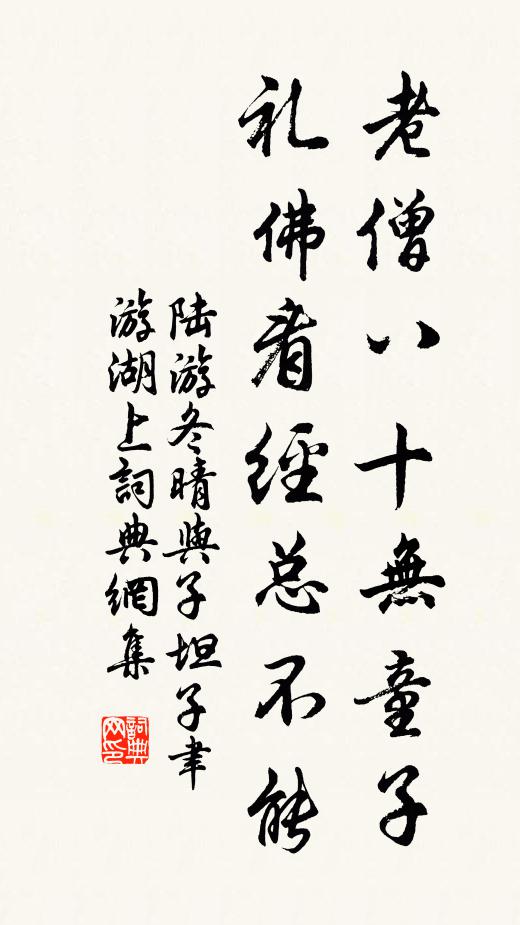 老僧八十無童子
礼佛看經总不能
陆游冬晴與子坦子聿
游湖上詞典網集
詞典
网印